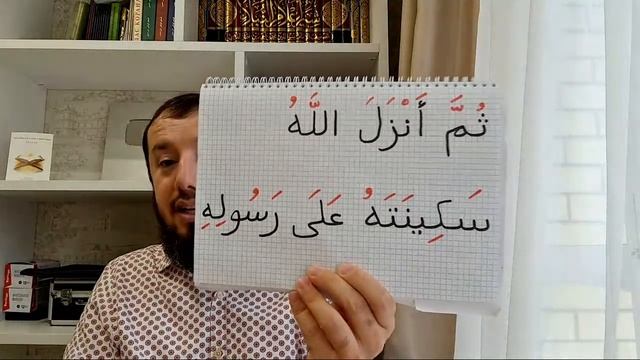 ثُمَّ أَنْزَلَ اللَّهُ
سَكِينَتَهُ عَلَى رَسُولِهِ